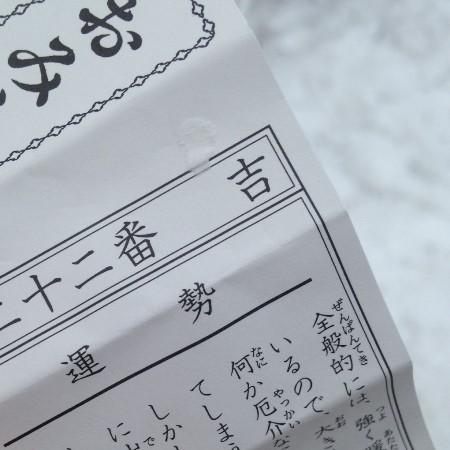 おみ
二十二番 吉
運勢
全般的に、強く
いるので、大き
何か厄介な
てしまう
しか
に